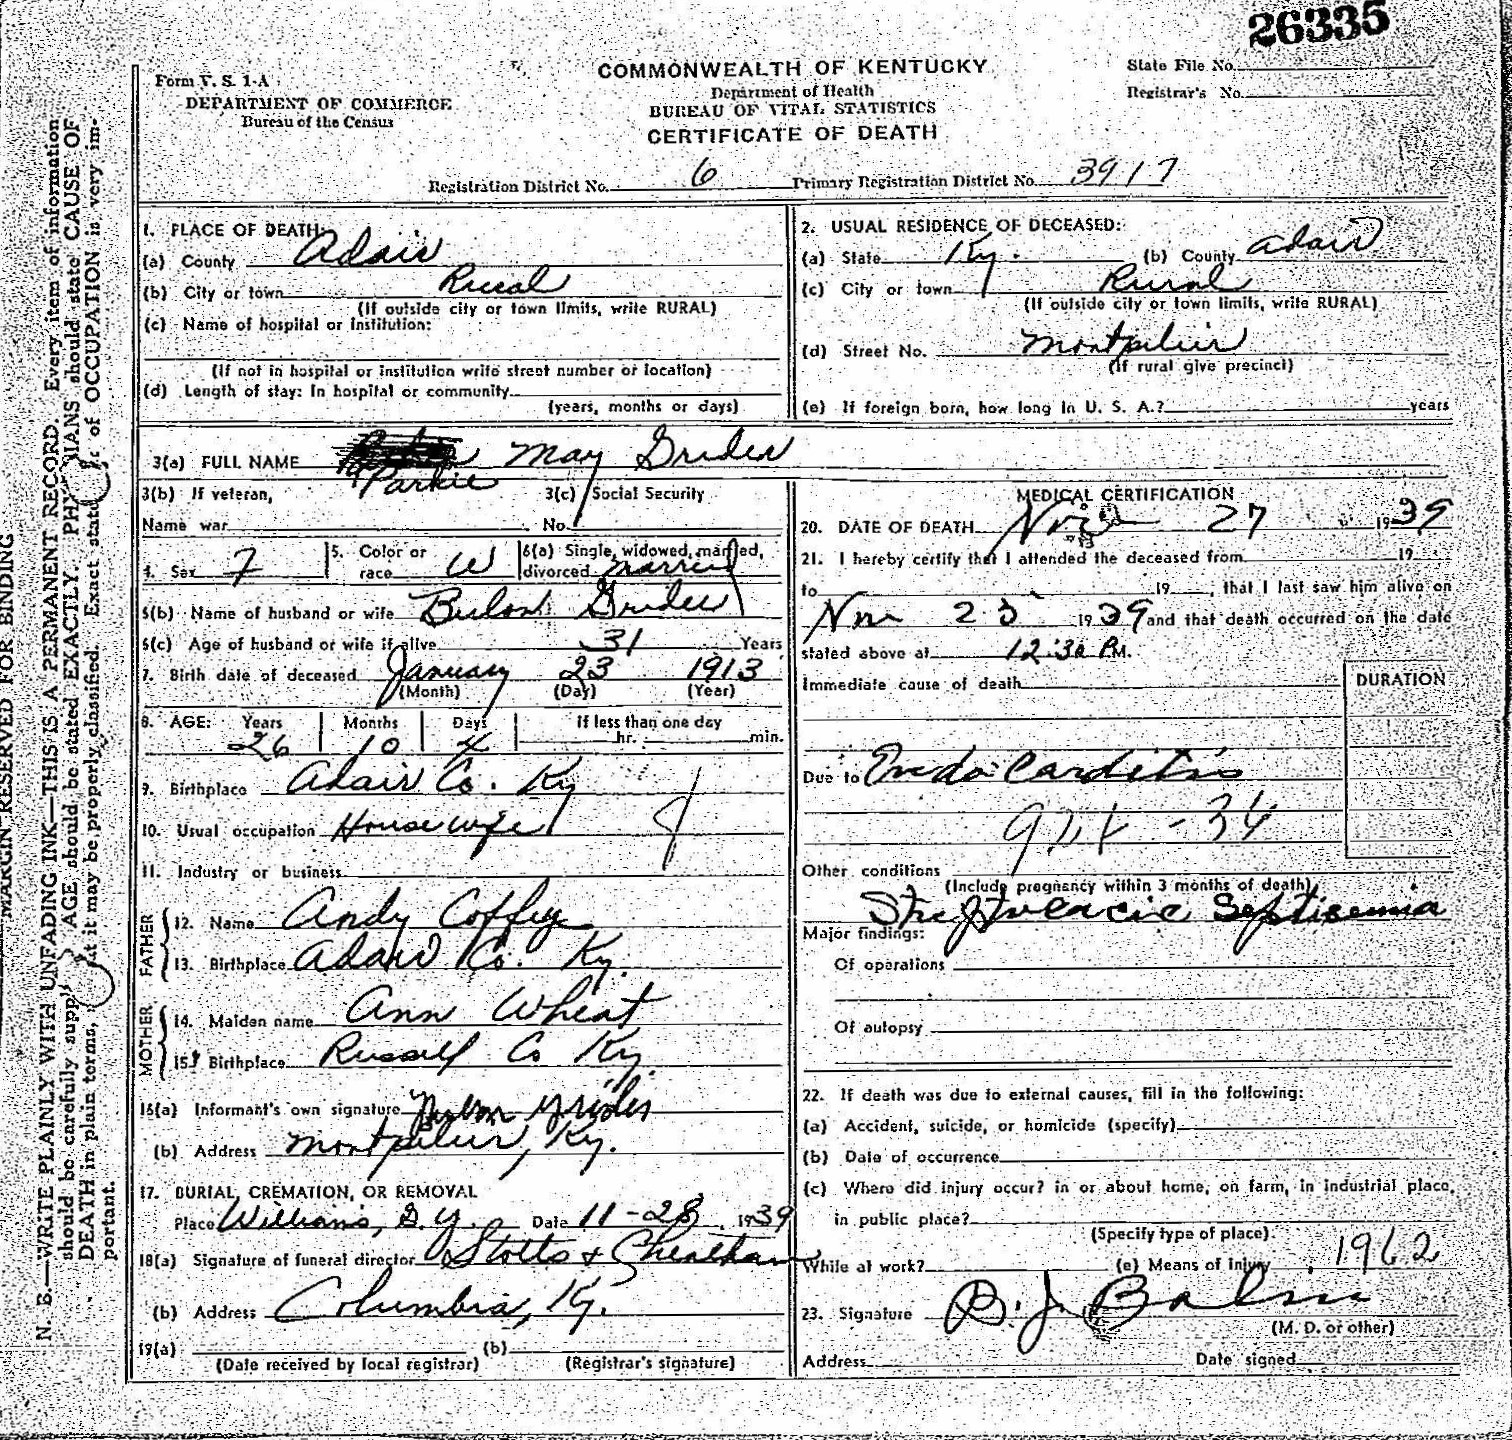 26335
Form V. S. 1-A
DEPARTMENT OF COMMERCE
Bureau of the Census
COMMONWEALTH OF KENTUCKY
Department of Health
BUREAU OF VITAL STATISTICS
CERTIFICATE OF DEATH
State File No.
Registrar's No.
Registration District No. 6 Primary Registration District No. 3917
MARGIN RESERVED FOR BINDING
N. B.—WRITE PLAINLY WITH UNFADING INK—THIS IS A PERMANENT RECORD. Every item of information
should be carefully AGE should be stated EXACTLY. should state CAUSE OF
DEATH in plain terms, it may be properly classified. Exact of OCCUPATION is very im-
portant.
1. PLACE OF DEATH:
(a) County Adair
(b) City or town Rural
(If outside city or town limits, write RURAL)
(c) Name of hospital or institution:
(If not in hospital or institution write street number or location)
(d) Length of stay: In hospital or community
(years, months or days)
2. USUAL RESIDENCE OF DECEASED:
(a) State Ky. (b) County Adair
(c) City or town Rural
(If outside city or town limits, write RURAL)
(d) Street No. Montpelier
(If rural give precinct)
(e) If foreign born, how long in U. S. A.? years
3(a) FULL NAME May Grider
Parkie
3(b) If veteran,
Name war
3(c) Social Security
No.
4. Sex F
5. Color or
race W
6(a) Single, widowed, married,
divorced married
6(b) Name of husband or wife Grider
6(c) Age of husband or wife if alive 31 Years
7. Birth date of deceased January 23 1913
(Month) (Day) (Year)
8. AGE: Years Months Days If less than one day
26 10 4 hr. min.
9. Birthplace Adair Co. Ky
10. Usual occupation Housewife
11. Industry or business
FATHER
12. Name Andy Coffey
13. Birthplace Adair Co. Ky.
MOTHER
14. Maiden name Ann Wheat
15. Birthplace Russell Co Ky.
16(a) Informant's own signature Grider
(b) Address Montpelier, Ky.
17. BURIAL, CREMATION, OR REMOVAL
Place Williams, G.Y. Date 11-28, 1939
18(a) Signature of funeral director Stotts & Cheatham
(b) Address Columbia, Ky.
19(a) (b)
(Date received by local registrar) (Registrar's signature)
MEDICAL CERTIFICATION
20. DATE OF DEATH Nov 27 1939
21. I hereby certify that I attended the deceased from 19
to 19 , that I last saw him alive on
Nov 23 1939 and that death occurred on the date
stated above at 12:30 P.M.
Immediate cause of death
DURATION
Due to Endo-Carditis
Other conditions
(Include pregnancy within 3 months of death)
Streptococcic Septisemia
Major findings:
Of operations
Of autopsy
22. If death was due to external causes, fill in the following:
(a) Accident, suicide, or homicide (specify)
(b) Date of occurrence
(c) Where did injury occur? in or about home, on farm, in industrial place,
in public place?
(Specify type of place)
While at work? (e) Means of injury 1962
23. Signature B. J.
(M. D. or other)
Address Date signed